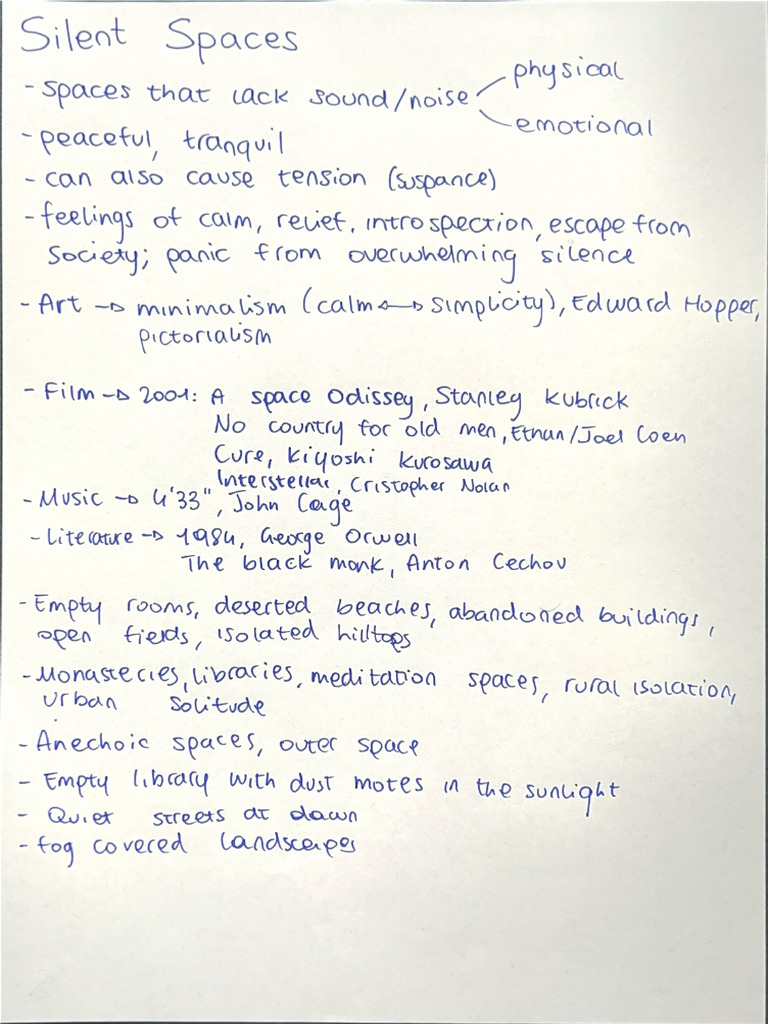 Silent Spaces
- spaces that lack sound/noise
physical
emotional
- peaceful, tranquil
- can also cause tension (suspance)
- feelings of calm, relief, introspection, escape from
society; panic from overwhelming silence
- Art → minimalism (calm ↔ simplicity), Edward Hopper,
pictorialism
- Film → 2001: A space Odissey, Stanley Kubrick
No country for old men, Ethan/Joel Coen
Cure, Kiyoshi Kurosawa
Interstellar, Cristopher Nolan
- Music → 4'33", John Cage
- Literature → 1984, George Orwell
The black monk, Anton Cechov
- Empty rooms, deserted beaches, abandoned buildings,
open fields, isolated hilltops
- Monasteries, libraries, meditation spaces, rural isolation,
urban solitude
- Anechoic spaces, outer space
- Empty library with dust motes in the sunlight
- Quiet streets at dawn
- fog covered landscapes